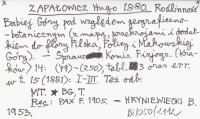 ZAPAŁOWICZ Hugo 1880. Roślinność
Babiej Góry pod względem geograficzno-
-botanicznym (z mapą, przekrojami i dodat-
kiem do flory Pilska, Policy i Makowskiej
Góry). Sprawozd. Komis. Fizjogr. (Kra-
ków) 14: (79)-(250) tabl. 3 oraz err.
w t. 15 (1881): I-III. Też odb.
MIT. ★ BG, T.
Rec.: PAX F. 1905. — HRYNIEWIECKI B.
1953.